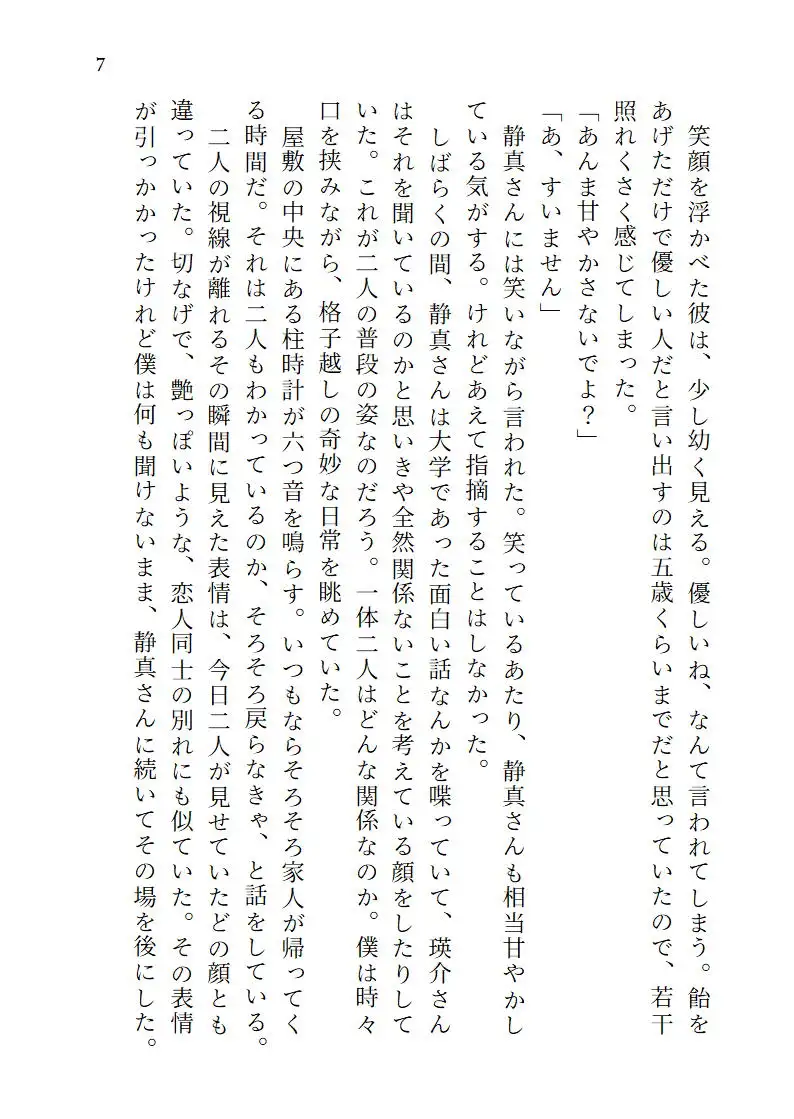 7
笑顔を浮かべた彼は、少し幼く見える。優しいね、なんて言われてしまう。飴を
あげただけで優しい人だと言い出すのは五歳くらいまでだと思っていたので、若干
照れくさく感じてしまった。
「あんま甘やかさないでよ？」
「あ、すいません」
静真さんには笑いながら言われた。笑っているあたり、静真さんも相当甘やかし
ている気がする。けれどあえて指摘することはしなかった。
しばらくの間、静真さんは大学であった面白い話なんかを喋っていて、瑛介さん
はそれを聞いているのかと思いきや全然関係ないことを考えている顔をしたりして
いた。これが二人の普段の姿なのだろう。一体二人はどんな関係なのか。僕は時々
口を挟みながら、格子越しの奇妙な日常を眺めていた。
屋敷の中央にある柱時計が六つ音を鳴らす。いつもならそろそろ家人が帰ってく
る時間だ。それは二人もわかっているのか、そろそろ戻らなきゃ、と話をしている。
二人の視線が離れるその瞬間に見えた表情は、今日二人が見せていたどの顔とも
違っていた。切なげで、艶っぽいような、恋人同士の別れにも似ていた。その表情
が引っかかったけれど僕は何も聞けないまま、静真さんに続いてその場を後にした。